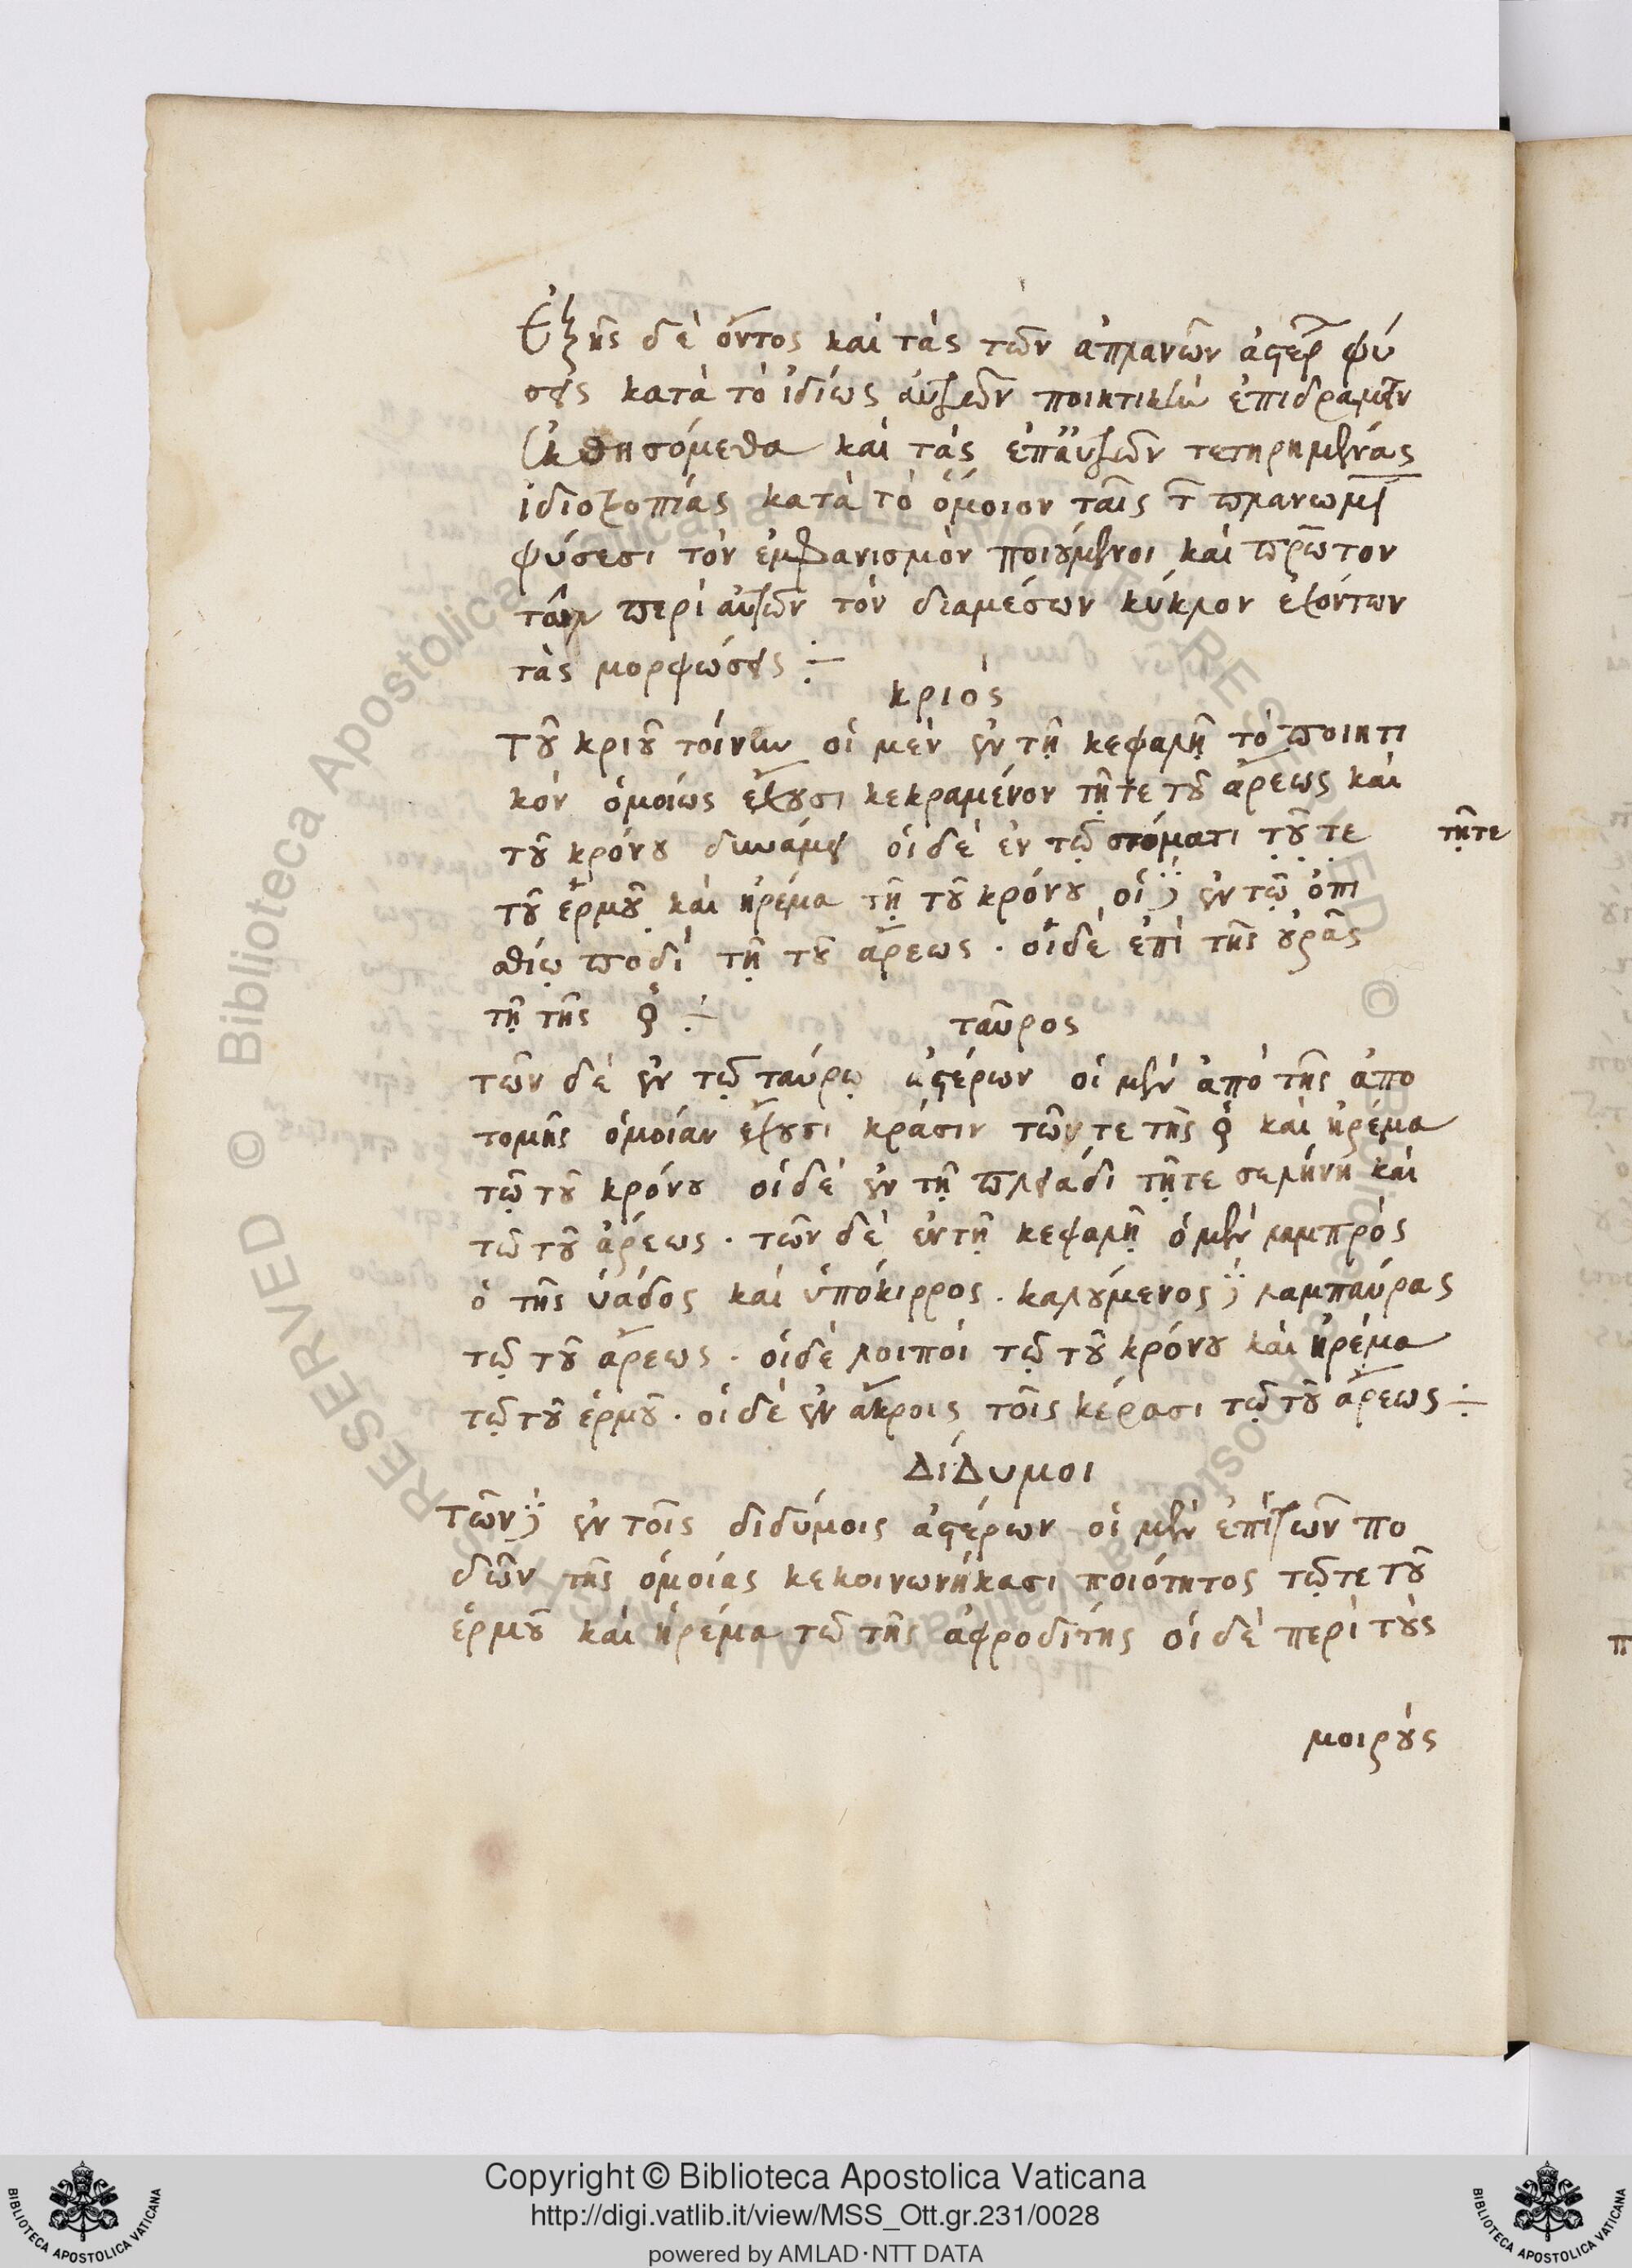 Ἑξῆς δὲ ὄντος καὶ τὰς τῶν ἀπλανῶν ἀστέρ φύ
σεις κατὰ τὸ ἰδίως αὐτῶν ποιητικὸν ἐπιδραμεῖν
ἐκθησόμεθα καὶ τὰς ἐπ αὐτῶν τετηρημένας
ἰδιοτροπίας κατὰ τὸ ὅμοιον ταῖς τ πλανωμέ
φύσεσι τὸν ἐμφανισμὸν ποιούμενοι καὶ πρῶτον
τῶν περὶ αὐτὸν τὸν διαμέσων κύκλον ἐχόντων
τὰς μορφώσεις ÷
κριός
Τοῦ κριοῦ τοίνυν οἱ μὲν ἐν τῇ κεφαλῇ τὸ ποιητι
κὸν ὁμοίως ἔχουσι κεκραμένον τῇ τε τοῦ ἄρεως καὶ
τοῦ κρόνου δυνάμει οἱ δὲ ἐν τῷ στόματι τοῦ τε
τῇ τε
τοῦ ἑρμοῦ καὶ ἠρέμα τῇ τοῦ κρόνου οἱ δὲ ἐν τῷ ὀπι
σθίῳ ποδὶ τῇ τοῦ ἄρεως · οἱ δὲ ἐπὶ τῆς οὐρᾶς
τῇ τῆς ♀ ÷
ταῦρος
τῶν δὲ ἐν τῷ ταύρῳ ἀστέρων οἱ μὲν ἀπὸ τῆς ἀπο
τομῆς ὁμοίαν ἔχουσι κράσιν τῶν τε τῆς ♀ καὶ ἠρέμα
τῷ τοῦ κρόνου οἱ δὲ ἐν τῇ πλειάδι τῇ τε σελήνῃ καὶ
τῷ τοῦ ἄρεως · τῶν δὲ ἐν τῇ κεφαλῇ ὁ μὲν λαμπρὸς
ὁ τῆς ὑάδος καὶ ὑπόκιρρος · καλούμενος δὲ λαμπαύρας
τῷ τοῦ ἄρεως · οἱ δὲ λοιποὶ τῷ τοῦ κρόνου καὶ ἠρέμα
τῷ τοῦ ἑρμοῦ · οἱ δὲ ἐν ἄκροις τοῖς κέρασι τῷ τοῦ ἄρεως ÷
Δίδυμοι
Τῶν δὲ ἐν τοῖς διδύμοις ἀστέρων οἱ μὲν ἐπὶ τῶν πο
δῶν τῆς ὁμοίας κεκοινωνήκασι ποιότητος τῷ τε τοῦ
ἑρμοῦ καὶ ἠρέμα τῷ τῆς ἀφροδίτης οἱ δὲ περὶ τοὺς
μοιρούς
Copyright © Biblioteca Apostolica Vaticana
http://digi.vatlib.it/view/MSS_Ott.gr.231/0028
powered by AMLAD·NTT DATA